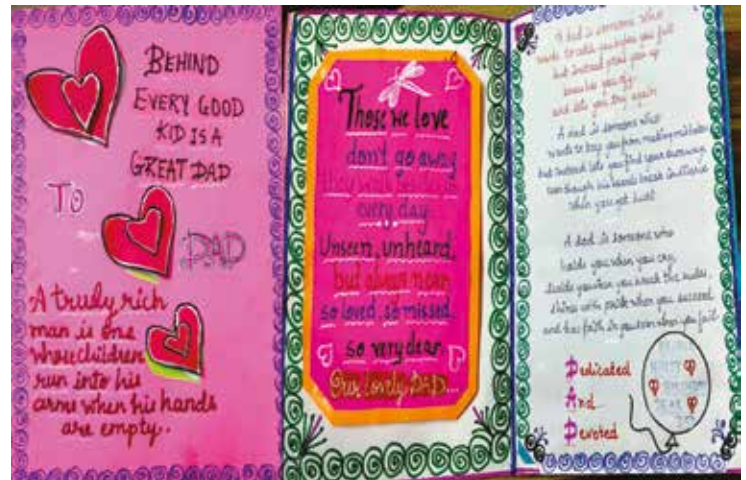 BEHIND
EVERY GOOD
KID IS A
GREAT DAD
TO
DAD
A truly rich
man is one
whose children
run into his
arms when his hands
are empty..
Those we love
don't go away
they walk beside us
every day
Unseen, unheard,
but always near
so loved, so missed,
so very dear.
Our lovely DAD...
A dad is someone who
wants to catch you before you fall
but instead picks you up
brushes you off
and lets you try again
A dad is someone who
wants to keep you from making mistakes
but instead lets you find your own way
even though his heart breaks in silence
when you get hurt
A dad is someone who
holds you when you cry,
scolds you when you break the rules,
shines with pride when you succeed
and has faith in you even when you fail
Dedicated
And
Devoted